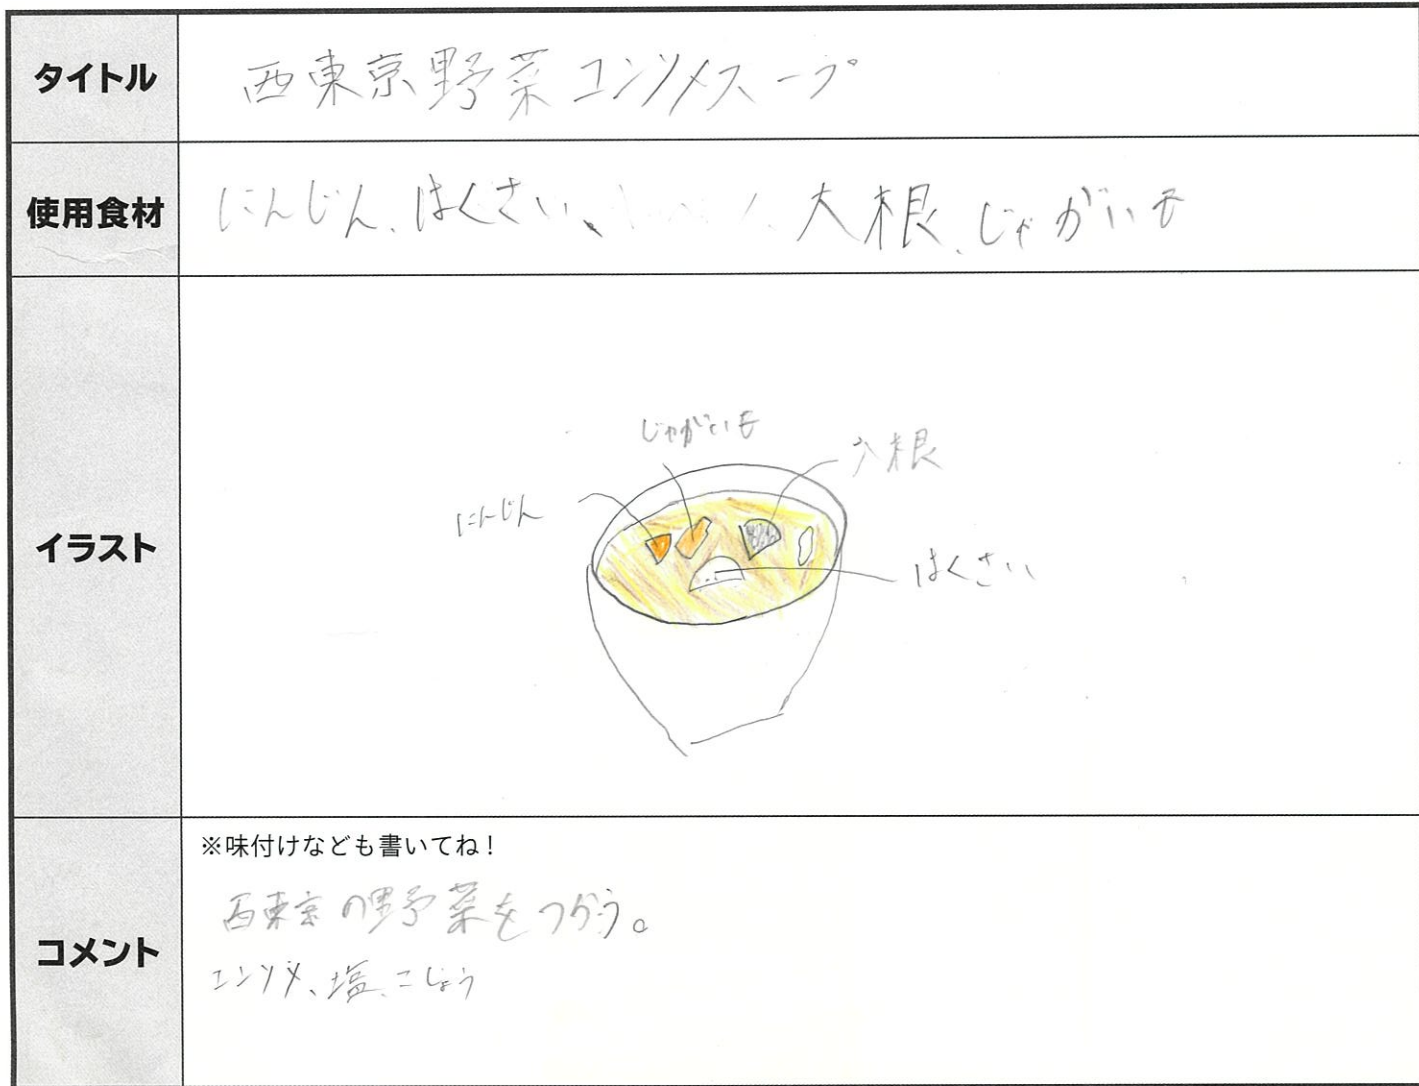 タイトル
西東京野菜コンソメスープ
使用食材
にんじん、はくさい、大根、じゃがいも
イラスト
じゃがいも
大根
にんじん
はくさい
コメント
※味付けなども書いてね!
西東京の野菜をつかう。
コンソメ、塩、こしょう